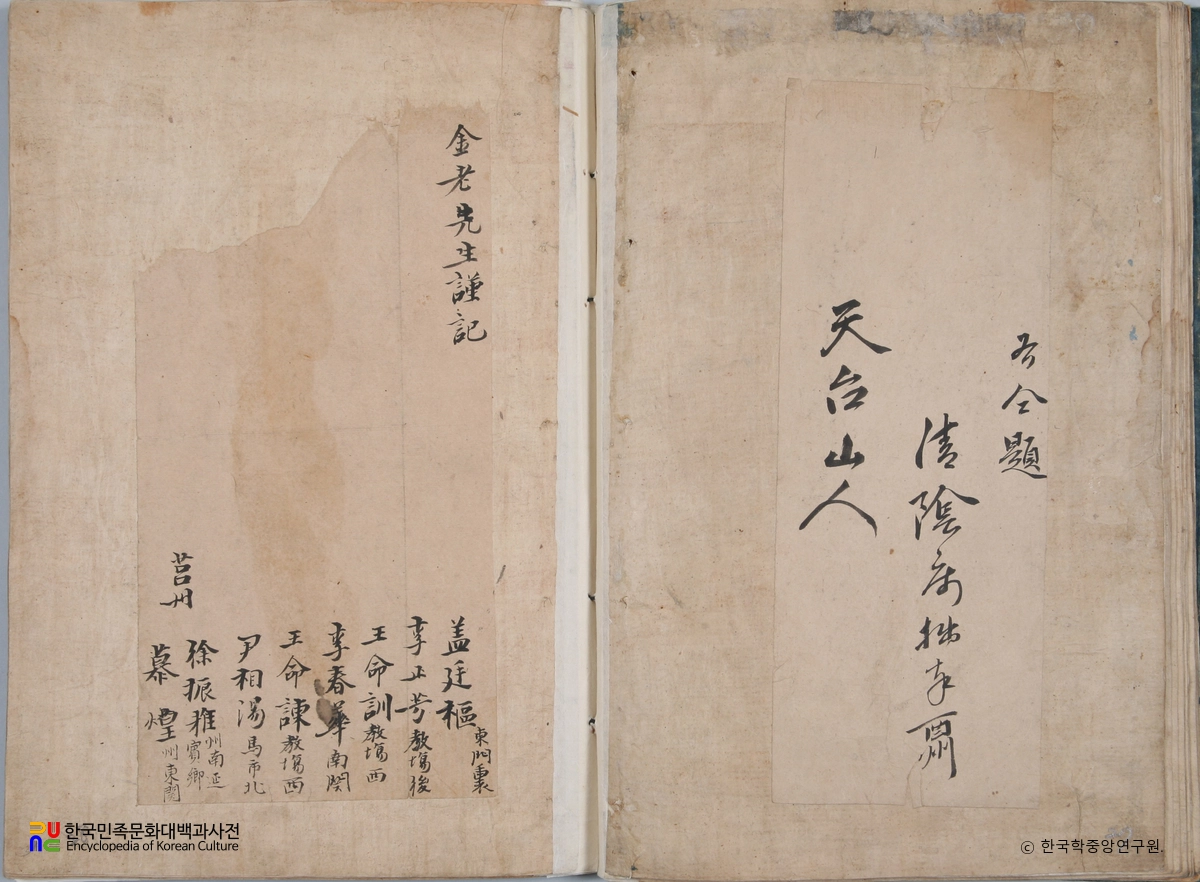 吾仝題
清陰病拙奉酬
天台山人
金老先生謹記
盖廷樞 東門裏
李正芳 教塲後
王命訓 教塲西
李春華 南関
王命諫 教塲西
尹相湯 馬市北
莒州
徐振雅 州南正 賓卿
慕煌 州東関
한국민족문화대백과사전
Encyclopedia of Korean Culture
ⓒ 한국학중앙연구원.